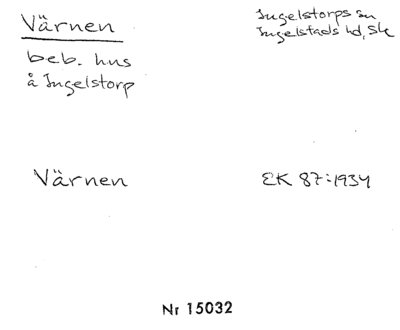 Värnen
Ingelstorps sn
Ingelstads hd, Sk
beb. hus
å Ingelstorp
Värnen
EK 87:1934
Nr 15032